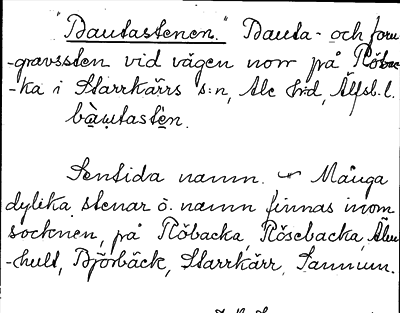 "Bautastenen." Bauta- och forn
-gravssten vid vägen norr på Röbac
-ka i Starrkärrs s:n, Ale h:d, Älfsb. l.
bàu̯tastèn.
Sentida namn. Många
dylika stenar o. namn finnas inom
socknen, på Röbacka, Rösebacka, Älve
-hult, Björbäck, Starrkärr, Sannum.